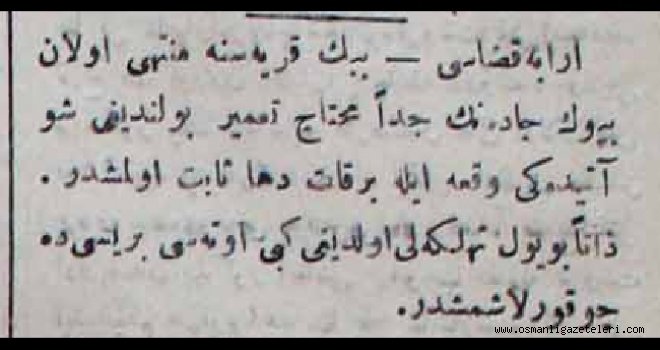 ارابه قضاسی — ببك قریه‌سنه منتهی اولان
بیوك جاده‌نك جداً محتاج تعمیر بولندیغی شو
آتیده‌كی وقعه ایله برقات دها ثابت اولمشدر .
ذاتاً بو یول تهلكه‌لی اولدیغی كبی اوته‌سی بریسی ده
چوقورلاشمشدر.
www.osmanligazeteleri.com